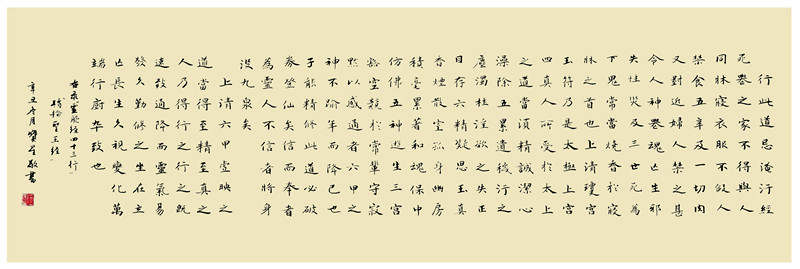 行此道忌淹汙經
死喪之家不得與人
同牀寢衣服不假人
禁食五辛及一切肉
又對近婦人禁之甚
令人神喪魂亡生邪
失性災及三世死為
下鬼常當燒香於寢
牀之首也上清瓊宮
玉符乃是太極上宮
四真人所受於太上
之道當須精誠潔心
澡除五累遺穢汙之
塵濁杜淫欲之失正
目存六精凝思玉真
香煙散室孤身幽房
積毫累著和魂保中
仿佛五神遊生三宮
豁空競於常輩守寂
默以感通者六甲之
神不踰年而降已也
子能精修此道必破
券登仙矣信而奉者
為靈人不信者將身
沒九泉矣
上清六甲虛映之
道當得至精至真之
人乃得行之行之既
速致通降而靈氣易
發久勤修之坐在立
亡長生久視變化萬
端行廚卒致也
靈飛經四十三行
辛丑 月 敬書